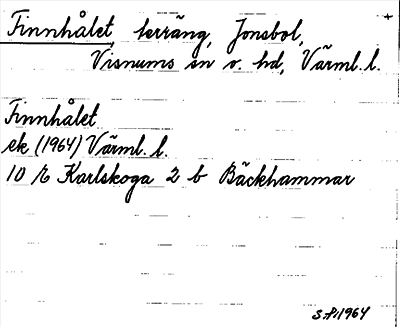 Finnhålet, terräng, Jonsbol,
Visnums sn o. hd, Värml. l.
Finnhålet
ek (1964) Värml. l.
10 E Karlskoga 2 b Bäckhammar
S.P. 1964